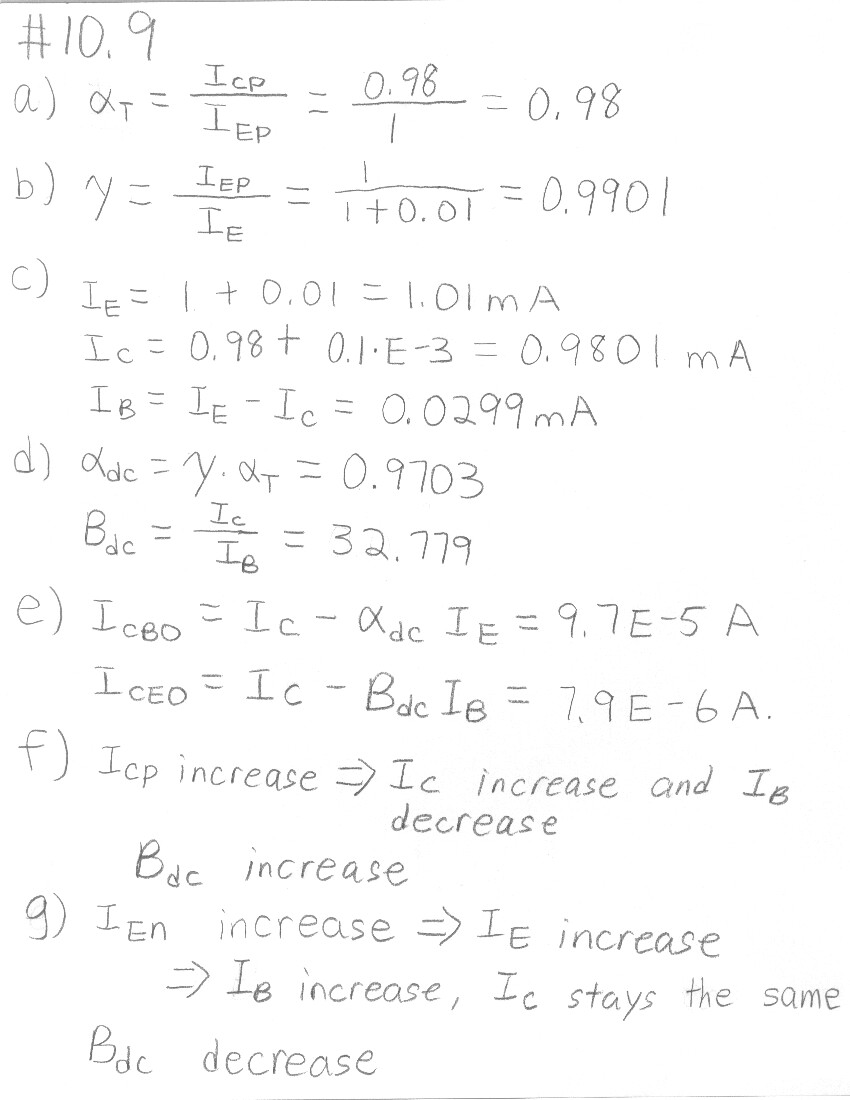 #10.9
a) α_T = I_CP / I_EP = 0.98 / 1 = 0.98
b) γ = I_EP / I_E = 1 / 1+0.01 = 0.9901
c) I_E = 1 + 0.01 = 1.01 mA
I_C = 0.98 + 0.1·E-3 = 0.9801 mA
I_B = I_E - I_C = 0.0299 mA
d) α_dc = γ·α_T = 0.9703
B_dc = I_C / I_B = 32.779
e) I_CBO = I_C - α_dc I_E = 9.7E-5 A
I_CEO = I_C - B_dc I_B = 7.9E-6 A.
f) I_CP increase ⇒ I_C increase and I_B
decrease
B_dc increase
g) I_En increase ⇒ I_E increase
⇒ I_B increase, I_C stays the same
B_dc decrease